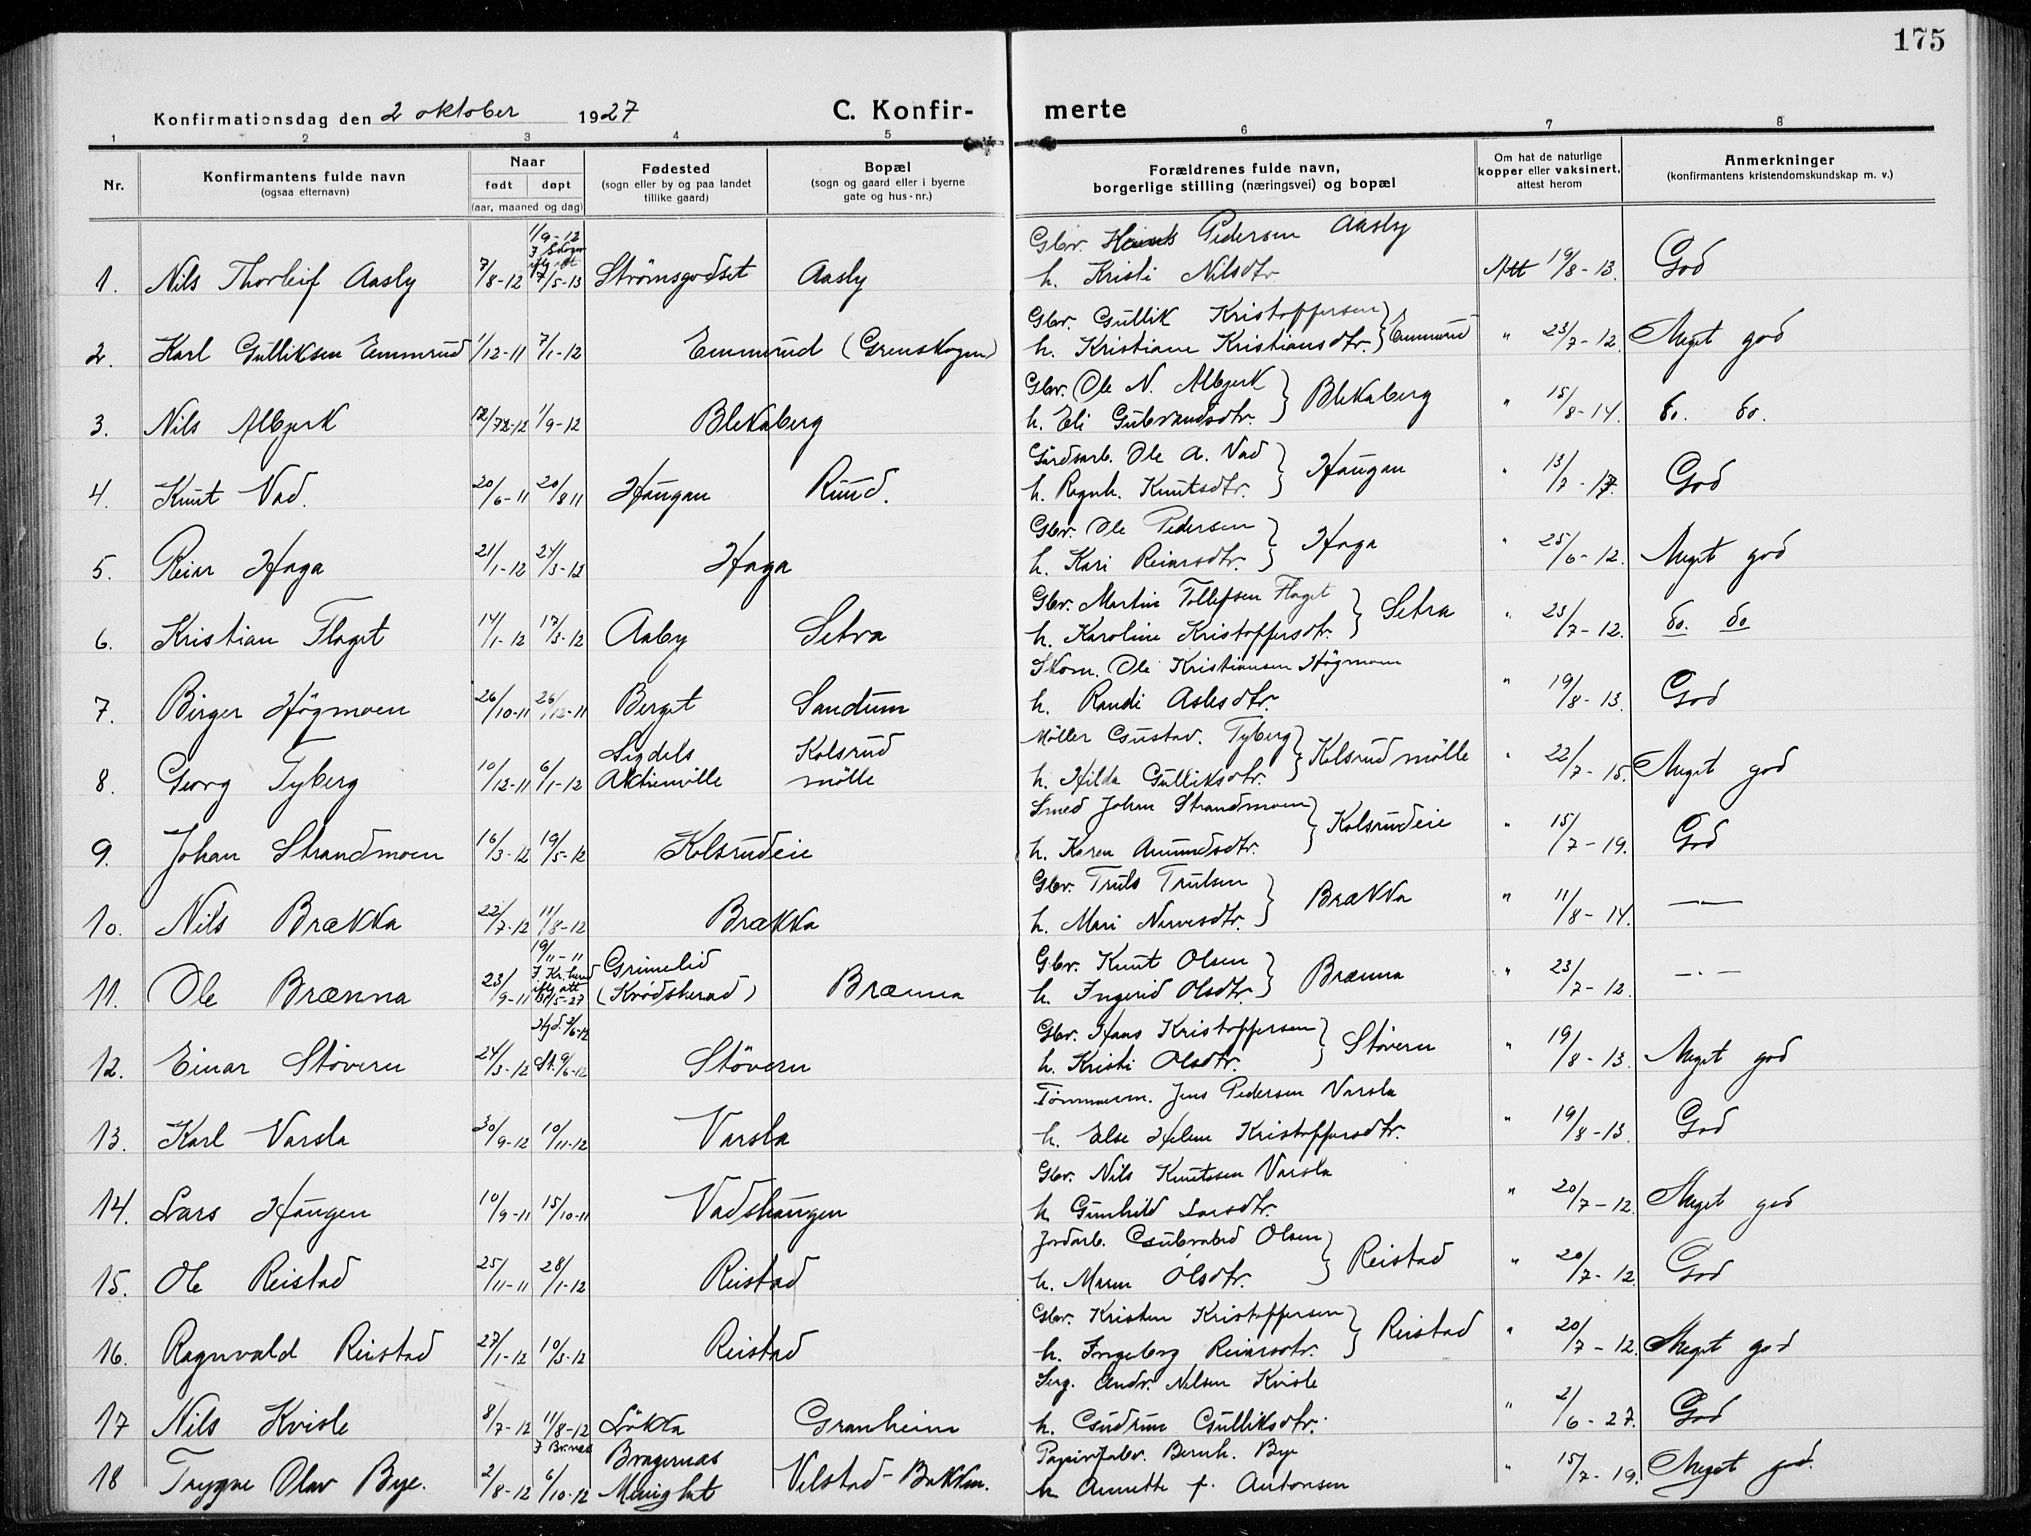 175
Konfirmationsdag den 2 oktober 1927
C. Konfir- merte
1 2 3 4 5 6 7 8
Nr.
Konfirmantens fulde navn
(ogsaa efternavn)
Naar
født døpt
(aar, maaned og dag)
Fødested
(sogn eller by og paa landet
tillike gaard)
Bopæl
(sogn og gaard eller i byerne
gate og hus-nr.)
Forældrenes fulde navn,
borgerlige stilling (næringsvei) og bopæl
Om hat de naturlige
kopper eller vaksinert,
attest herom
Anmerkninger
(konfirmantens kristendomskundskap m. v.)
1/9-12
Gbr. Pedersen Aasby
1. Nils Thorleif Aasby 7/8-12 17/5-13 Strømsgodset Aasby h. Kristi Nilsdtr. Att 19/8-13. God
Gbr. Gullik Kristoffersen
2. Karl Gulliksen Emmrud 1/12-11 7/1-12 Emmrud (Grenskogen) h. Kristiane Kristiansdtr. } Emmrud " 23/7-12. Meget god
Gbr. Ole N. Albjerk
3. Nils Albjerk 1/9-12 Blekaberg h. Eli Gulbrandsdtr. } Blekaberg " 15/8-14. do. do.
Gårdsarb. Ole A. Vad
4. Knut Vad. 20/6-11 20/8 11 Haugan Ruud. h. Ragnh. Knutsdtr. } Haugan " 13/7-17. God
Gbr. Ole Pedersen
5. Reiar Haga 21/1-12 24/3-12 Haga h. Kari Reiarsdtr. } Haga " 25/6-12. Meget god
Gbr. Martin Tollefsen Flaget
6. Kristian Flaget 14/1-12 17/3-12 Aaby Setra h. Karoline Kristoffersdtr. } Setra " 23/7-12. do. do
Skom. Ole Kristiansen Högmoen
7. Birger Högmoen 26/10-11 26/12-11 Berget Sandum h. Randi Aslesdtr. " 19/8-13. God
Möller Gustav. Tyberg
8. Georg Tyberg 10/12-11 6/1-12 Sigdals Aktiemölle Kolsrud mölle h. Hilda Gulliksdtr. } Kolsrud mölle " 22/7-15. Meget god
Smed Johan Strandmoen
9. Johan Strandmoen 16/3-12 19/5-12 Kolsrudeie h. Karen Amundsdtr. } Kolsrudeie " 15/7-19. God
Gbr. Truls Trulsen
10. Nils Brækka 22/7-12 11/8-12 Brækka h. Mari Nirvesdtr. } Brækka " 11/8-14. —"—
19/11-11
Gbr. Knut Olsen
11. Ole Brænna 23/9-11 Grimelid (Krødsherad) Brænna h. Ingerid Olsdtr. } Brænna " 23/7-12. —"—
Hjd. 2/6-12
Gbr. Hans Kristoffersen
12. Einar Støvern 24/3-12 St. 9/6-12 Støvern h. Kristi Olsdtr. } Støvern " 19/8-13. Meget god
Tömmerm. Jens Pedersen Varsla
13. Karl Varsla 30/9-12 10/11-12 Varsla h. Else Helene Kristoffersdtr. " 19/8-13. God
Gbr. Nils Knutsen Varsla
14. Lars Haugen 10/9-11 15/10-11 Vadshaugen h. Gunhild Larsdtr. " 20/7-12. Meget god
Jordarb. Gulbrand Olsen
15. Ole Reistad 25/11-11 28/1-12 Reistad h. Maren Olsdtr. } Reistad " 20/7-12. God
Gbr. Kristen Kristoffersen
16. Ragnvald Reistad 27/1-12 10/3-12 Reistad h. Ingeborg Reiarsdtr. } Reistad " 20/7-12. Meget god
Serg. Andr. Nilsen Kvisle
17 Nils Kvisle 8/7-12 11/8-12 Løkka Granheim h. Gudrun Gulliksdtr. " 2/6-27. God
Papirfabr. Bernh. Bye
18 Trygve Olav Bye. 2/8-12 6/10-12 Bragernes Velstad-Bakken. h. Annette f. Antonsen " 15/7-19. Meget god.